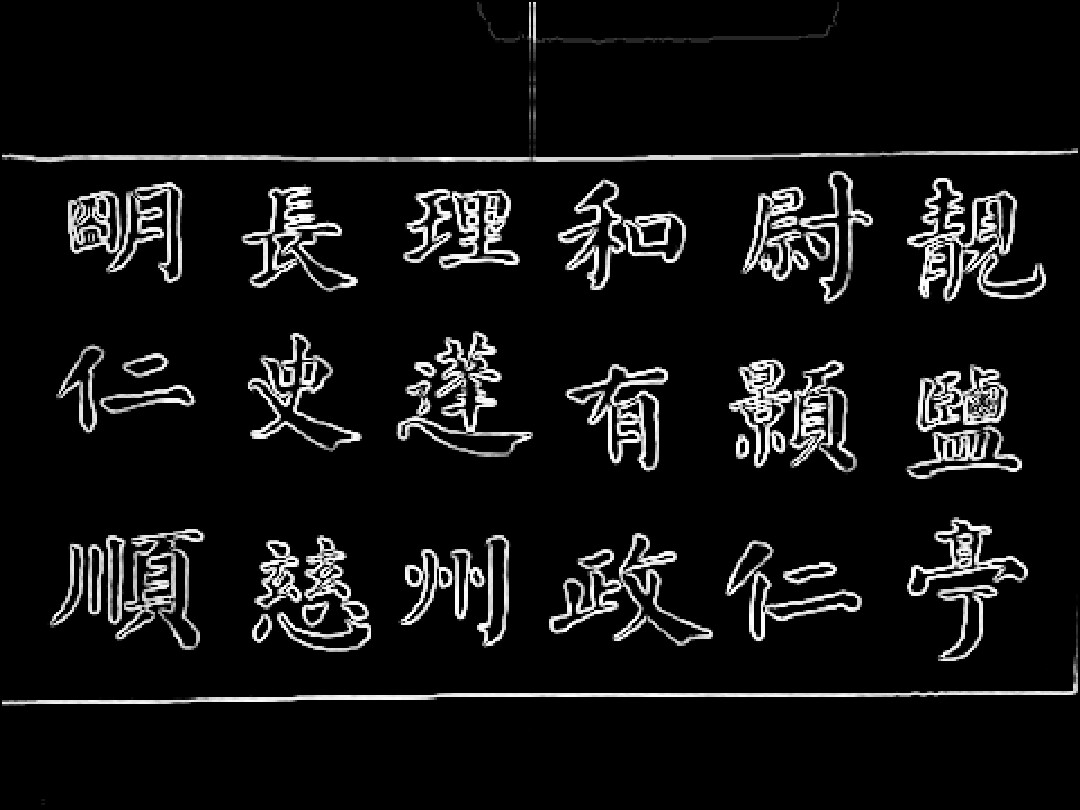 靚鹽亭
尉顥仁
和有政
理蓬州
長史慈
明仁順